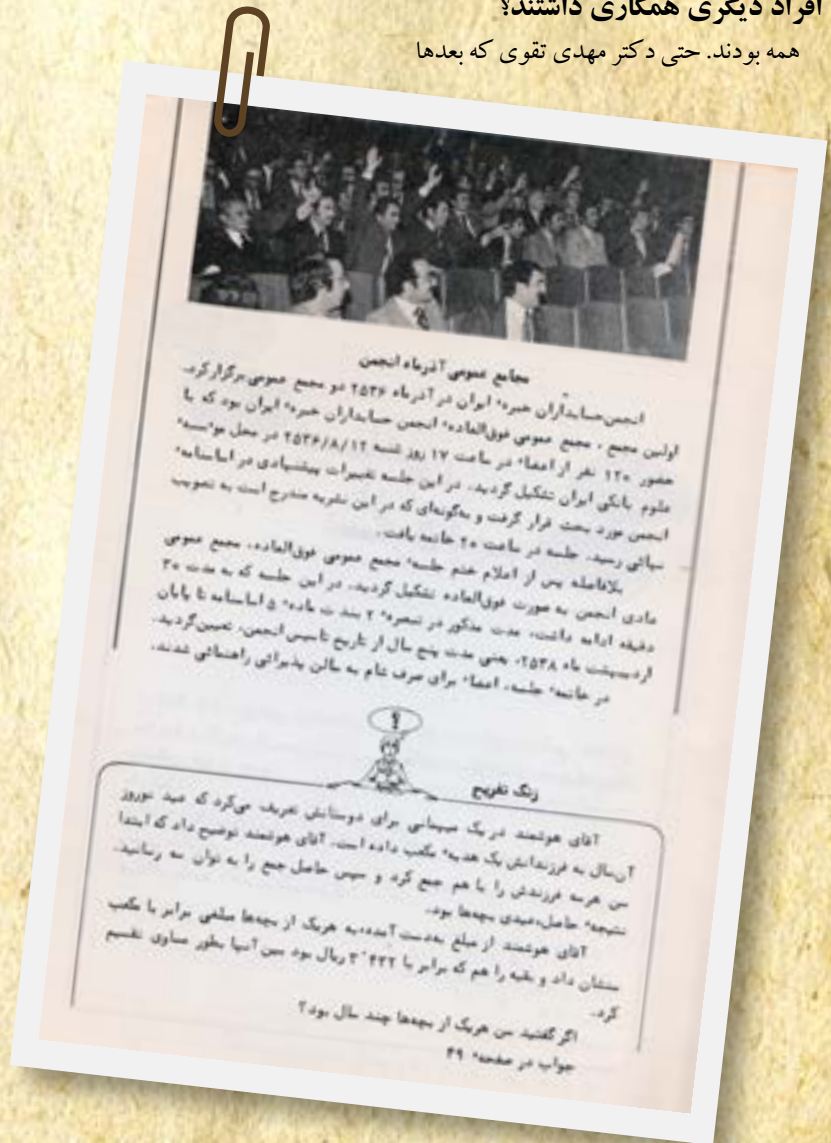 افراد دیگری همکاری داشتند؟
همه بودند. حتی دکتر مهدی تقوی که بعدها
مجامع عمومی آذرماه انجمن
انجمن حسابداران خبرهٔ ایران در آذرماه ۲۵۳۶ دو مجمع عمومی برگزار کرد.
اولین مجمع، مجمع عمومی فوق‌العادهٔ انجمن حسابداران خبرهٔ ایران بود که با
حضور ۱۲۰ نفر از اعضاء در ساعت ۱۷ روز شنبه ۲۵۳۶/۸/۱۲ در محل موٴسسهٔ
علوم بانکی ایران تشکیل گردید. در این جلسه تغییرات پیشنهادی در اساسنامهٔ
انجمن مورد بحث قرار گرفت و به‌گونه‌ای که در این نشریه مندرج است به تصویب
نهائی رسید. جلسه در ساعت ۲۰ خاتمه یافت.
بلافاصله پس از اعلام ختم جلسهٔ مجمع عمومی فوق‌العاده، مجمع عمومی
عادی انجمن به صورت فوق‌العاده تشکیل گردید. در این جلسه که به مدت ۳۰
دقیقه ادامه داشت، مدت مذکور در تبصرهٔ ۲ بند ت مادهٔ ۵ اساسنامه تا پایان
اردیبهشت ماه ۲۵۳۸، یعنی مدت پنج سال از تاریخ تاسیس انجمن، تعیین گردید.
در خاتمهٔ جلسه، اعضاء برای صرف شام به سالن پذیرائی راهنمائی شدند.
؟
زنگ تفریح
آقای هوشمند در یک میهمانی برای دوستانش تعریف می‌کرد که عید نوروز
آن‌سال به فرزندانش یک هدیهٔ مکعب داده است. آقای هوشمند توضیح داد که ابتدا
سن هرسه فرزندش را با هم جمع کرد و سپس حاصل جمع را به توان سه رسانید.
نتیجهٔ حاصل، عیدی بچه‌ها بود.
آقای هوشمند از مبلغ به‌دست آمده، به هریک از بچه‌ها مبلغی برابر با مکعب
سنشان داد و بقیه را هم که برابر با ۳٬۴۳۲ ریال بود بین آنها بطور مساوی تقسیم
کرد.
اگر گفتید سن هریک از بچه‌ها چند سال بود؟
جواب در صفحهٔ ۴۹